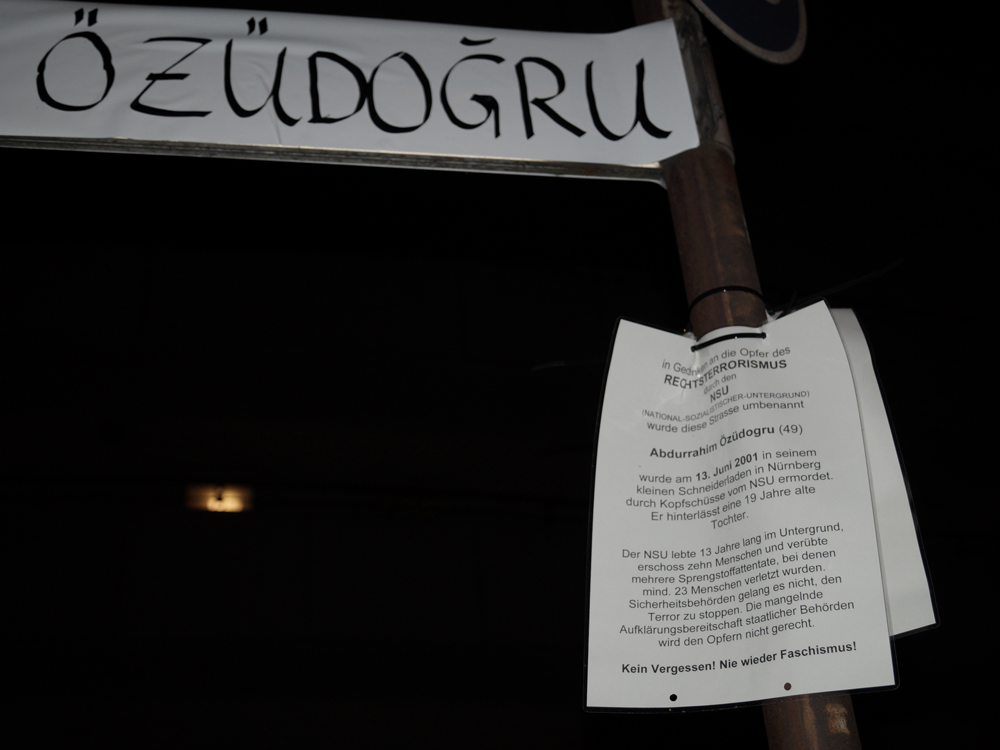 ÖZÜDOĞRU
in Gedenken an die Opfer des
RECHTSTERRORISMUS
durch den
NSU
(NATIONAL-SOZIALISTISCHER-UNTERGRUND)
wurde diese Strasse umbenannt
Abdurrahim Özüdogru (49)
wurde am 13. Juni 2001 in seinem
kleinen Schneiderladen in Nürnberg
durch Kopfschüsse vom NSU ermordet.
Er hinterlässt eine 19 Jahre alte
Tochter.
Der NSU lebte 13 Jahre lang im Untergrund,
erschoss zehn Menschen und verübte
mehrere Sprengstoffattentate, bei denen
mind. 23 Menschen verletzt wurden.
Sicherheitsbehörden gelang es nicht, den
Terror zu stoppen. Die mangelnde
Aufklärungsbereitschaft staatlicher Behörden
wird den Opfern nicht gerecht.
Kein Vergessen! Nie wieder Faschismus!